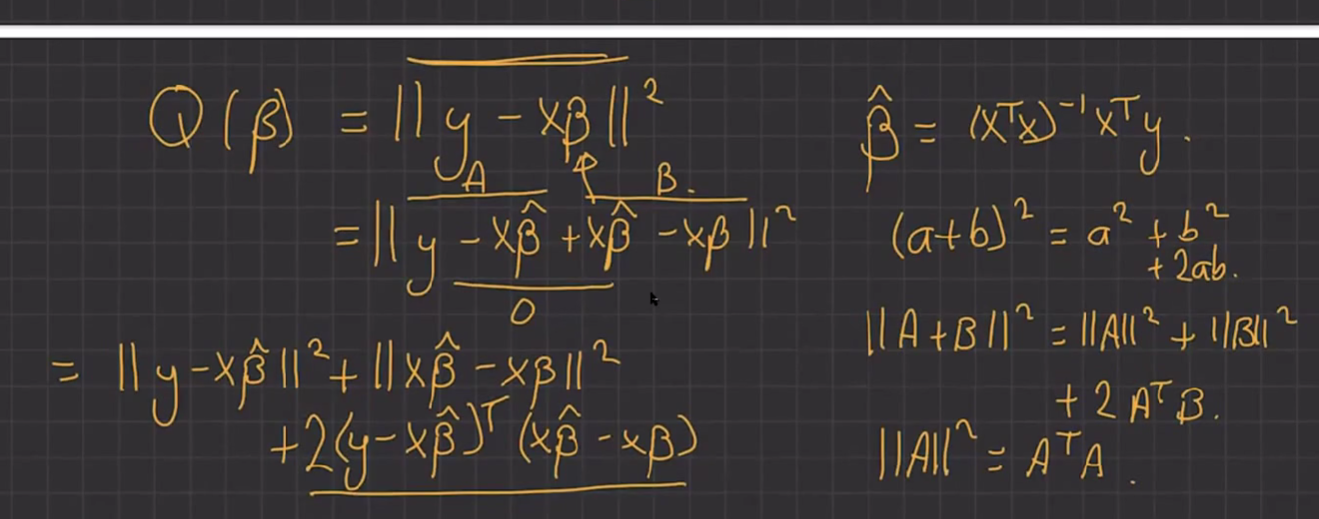 Q(β) = ||y - xβ||²
A B.
= ||y - xβ̂ + xβ̂ - xβ||²
0
= ||y - xβ̂||² + ||xβ̂ - xβ||²
+ 2(y - xβ̂)ᵀ (xβ̂ - xβ)
β̂ = (xᵀx)⁻¹ xᵀy.
(a+b)² = a² + b²
+ 2ab.
||A + B||² = ||A||² + ||B||²
+ 2 AᵀB.
||A||² = AᵀA.